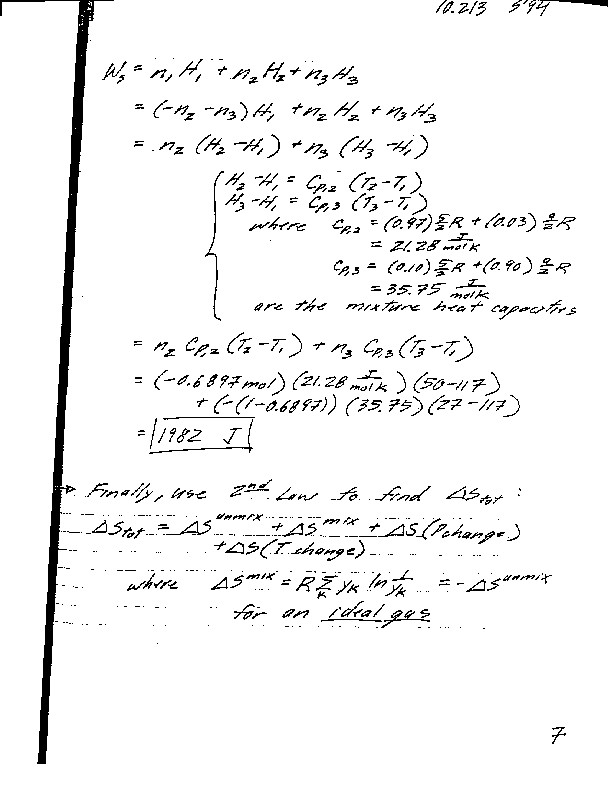 10.213 S'94
Ws = n₁H₁ + n₂H₂ + n₃H₃
= (-n₂ - n₃)H₁ + n₂H₂ + n₃H₃
= n₂(H₂-H₁) + n₃(H₃-H₁)
H₂-H₁ = Cp,2 (T₂-T₁)
H₃-H₁ = Cp,3 (T₃-T₁)
where Cp,2 = (0.97) 5/2 R + (0.03) 9/2 R
= 21.28 J/mol K
Cp,3 = (0.10) 5/2 R + (0.90) 9/2 R
= 35.75 J/mol K
are the mixture heat capacities
= n₂ Cp,2 (T₂-T₁) + n₃ Cp,3 (T₃-T₁)
= (-0.6897 mol)(21.28 J/mol K)(50-117)
+ (-(1-0.6897))(35.75)(27-117)
= 1982 J
→ Finally, use 2nd Law to find ΔStot :
ΔStot = ΔS^unmix + ΔS^mix + ΔS(P change)
+ ΔS(T change)
where ΔS^mix = R Σ_k y_k ln 1/y_k = -ΔS^unmix
for an ideal gas
7